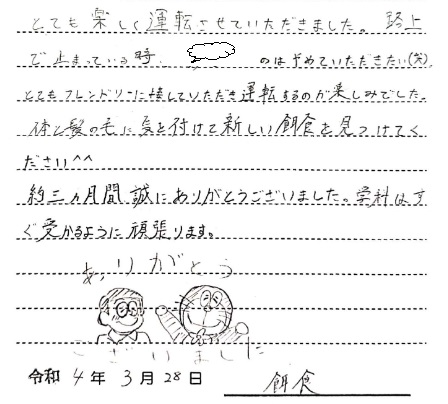 とても楽しく運転させていただきました。路上
で止まっている時、 のはやめていただきたい(笑)。
とてもフレンドリーに接していただき運転するのが楽しみでした。
体と髪の毛に気を付けて新しい餌食を見つけてく
ださい^^
約三ヵ月間誠にありがとうございました。学科はす
ぐ受かるように頑張ります。
ありがとう
ございました
令和 4 年 3 月 28 日 餌食